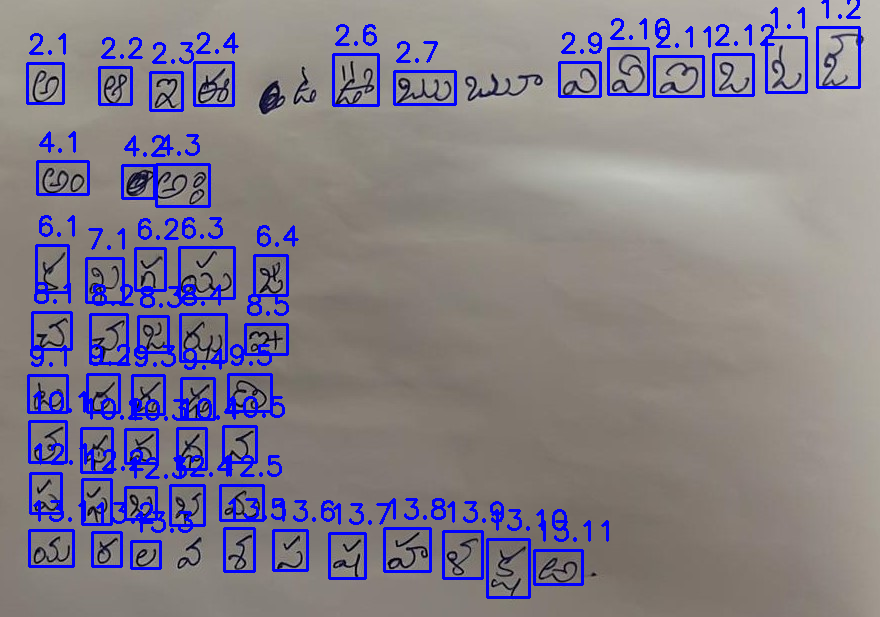 2.1 2.2 2.3 2.4 2.6 2.7 2.9 2.10 2.11 2.12 1.1 1.2
అ ఆ ఇ ఈ ఉ ఊ ఋ ౠ ఎ ఏ ఐ ఒ ఓ ఔ
4.1 4.2 4.3
అం అః
6.1 7.1 6.2 6.3 6.4
క ఖ గ ఘ ఙ
8.1 8.2 8.3 8.4 8.5
చ ఛ జ ఝ ఞ
9.1 9.2 9.3 9.4 9.5
ట ఠ డ ఢ ణ
10.1 10.2 10.3 10.4 10.5
త థ ద ధ న
12.1 12.2 12.3 12.4 12.5
ప ఫ బ భ మ
13.1 13.2 13.3 13.5 13.6 13.7 13.8 13.9 13.10 13.11
య ర ల వ శ స ష హ ళ క్ష ఱ.